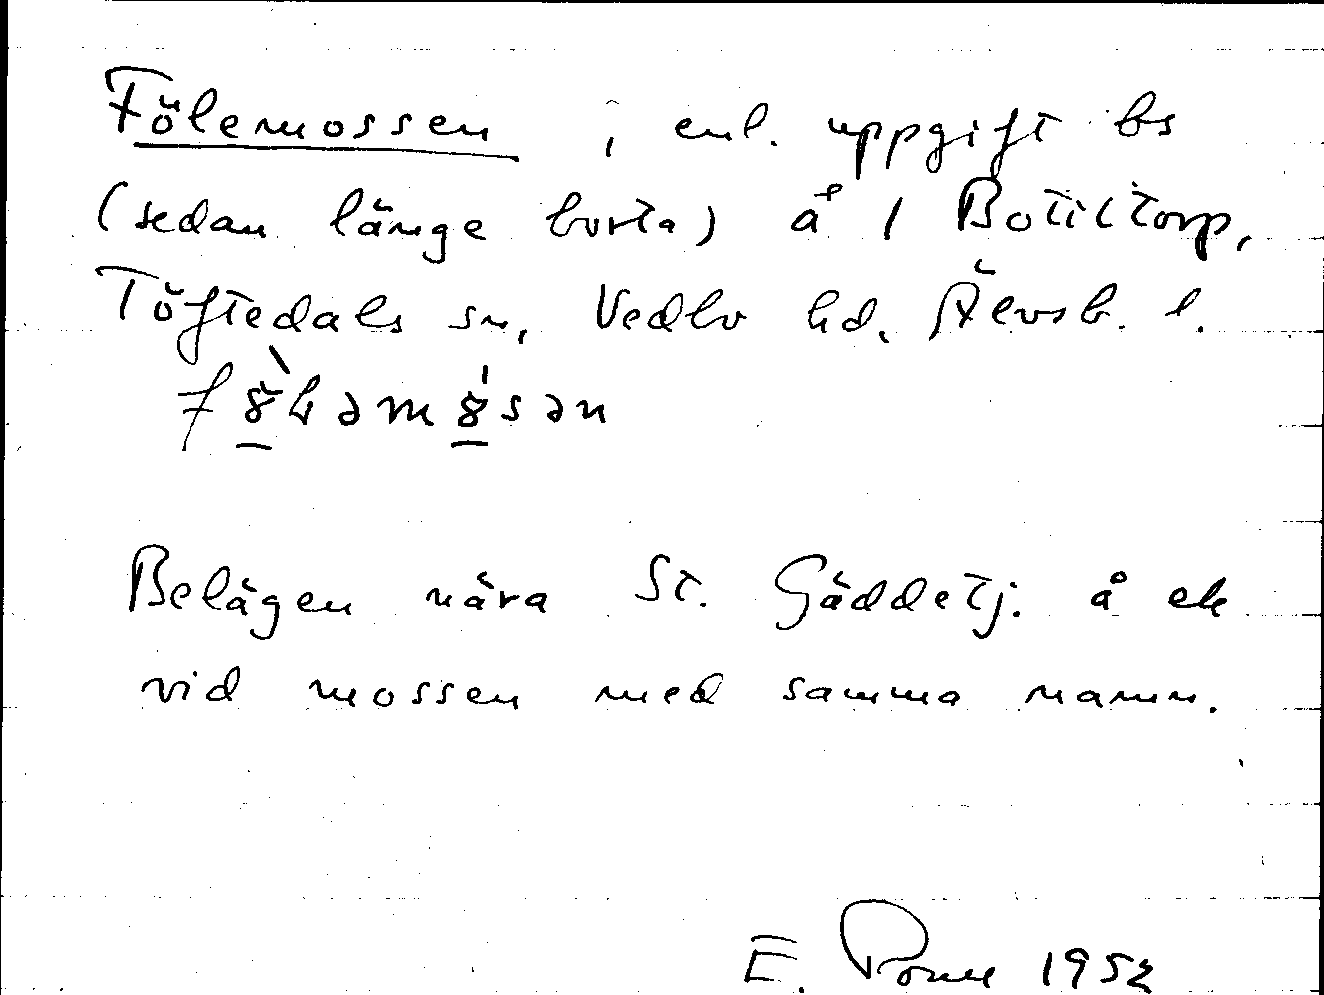 Fölemossen, enl. uppgift bs
(sedan länge borta) å 1 Botiltorp,
Töftedals sn, Vedbo hd. Älvsb. l.
Belägen nära St. Gäddetj. å ek
vid mossen med samma namn.
E. 1952